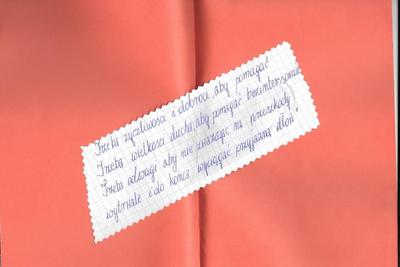 Trzeba życzliwości i dobroci, aby pomagać
Trzeba wielkości ducha, aby pomagać bezinteresownie
Trzeba odwagi aby nie zważając na przeszkody
wytrwale i do końca wyciągać przyjazną dłoń!